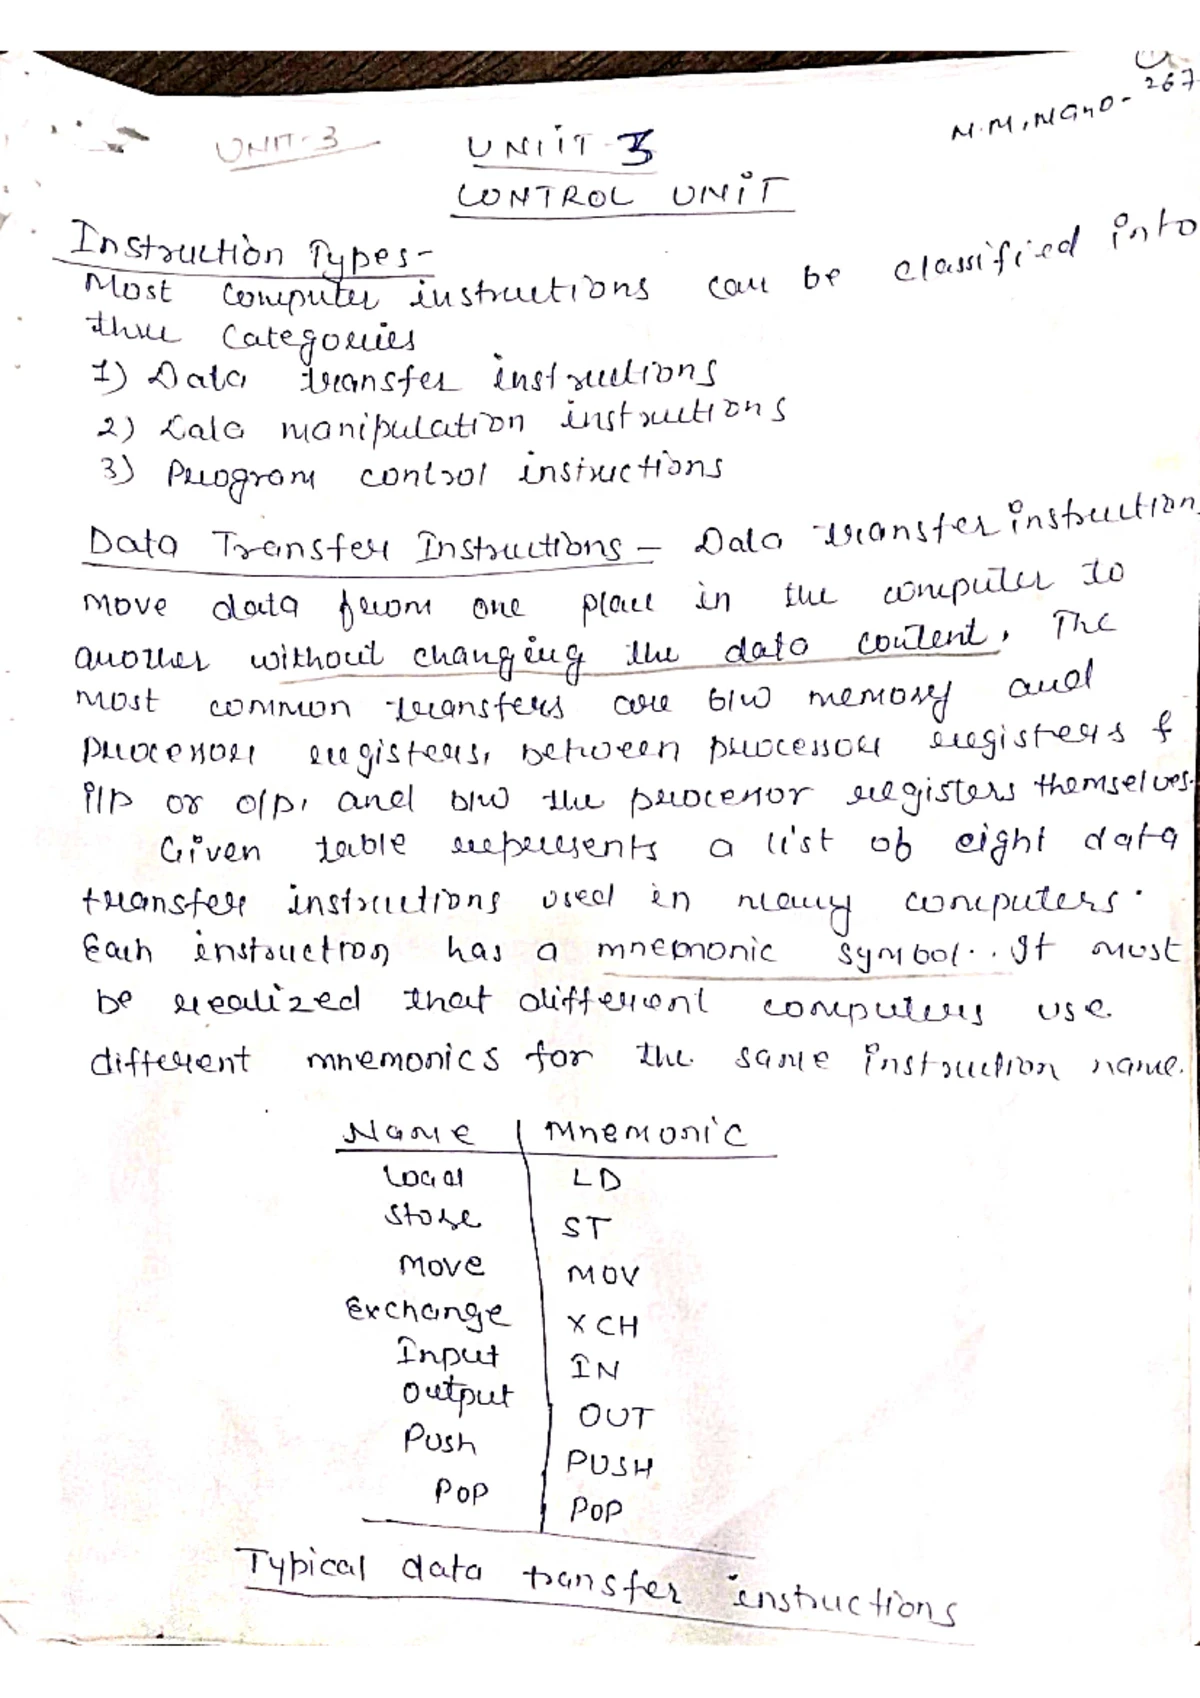 ①
M.M. Mano - 267
UNIT-3
UNIIT-3
CONTROL UNIT
Instruction Types-
Most computer instructions can be classified into
three categories
1) Data transfer instructions
2) Data manipulation instructions
3) Program control instructions
Data Transfer Instructions - Data transfer instruction
move data from one place in the computer to
another without changing the data content. The
most common transfers are b/w memory and
processor registers, between processor registers &
i/p or o/p, and b/w the processor registers themselves.
Given table represents a list of eight data
transfer instructions used in many computers.
Each instruction has a mnemonic symbol. It must
be realized that different computers use
different mnemonics for the same instruction name.
Name | Mnemonic
Load LD
Store ST
Move MOV
Exchange XCH
Input IN
Output OUT
Push PUSH
Pop POP
Typical data transfer instructions